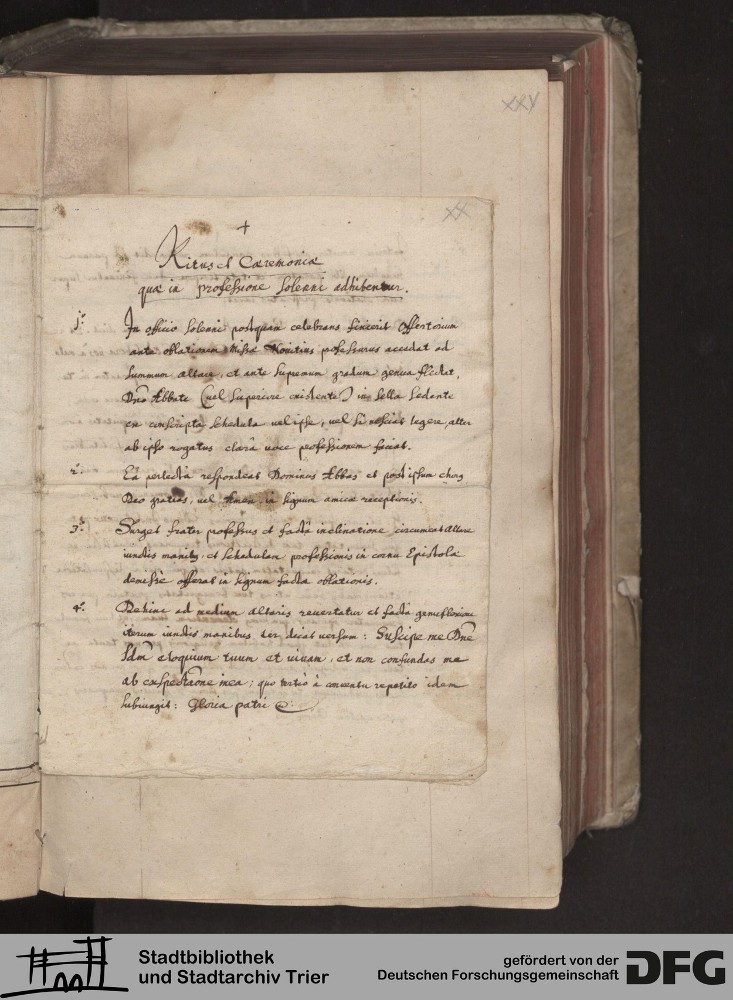 xxv
xx
+
Ritus et Cæremoniæ
quæ in professione solenni adhibentur.
1º. In officio solenni postquam celebrans finierit offertorium
ante oblationem Missæ Novitius professurus accedat ad
summum altare, et ante supremum gradum genua flectat,
Dno Abbate (vel superiore existente) in sella sedente
ex conscripta schedula vel ipse, vel si nesciat legere, alter
ab ipso rogatus clarâ voce professionem faciat.
2º. Eâ perlectâ respondeat Dominus Abbas et post ipsum chorus
Deo gratias, vel Amen in signum amicæ receptionis.
3º. Surget frater professus et factâ inclinatione circumeat altare
iunctis manibus, et schedulam professionis in cornu Epistolæ
demissè offerat in signum factæ oblationis.
4º. Dehinc ad medium altaris revertatur et factâ genuflexione
iterum iunctis manibus ter dicat versum: Suscipe me Dne
sdm eloquium tuum et vivam, et non confundas me
ab exspectaōne mea; quo tertiò à conventu repetito idem
subiungit: Gloria patri
Stadtbibliothek
und Stadtarchiv Trier
gefördert von der
Deutschen Forschungsgemeinschaft
DFG